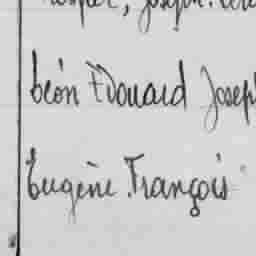 Joseph
Léon Édouard Joseph
Eugène. François